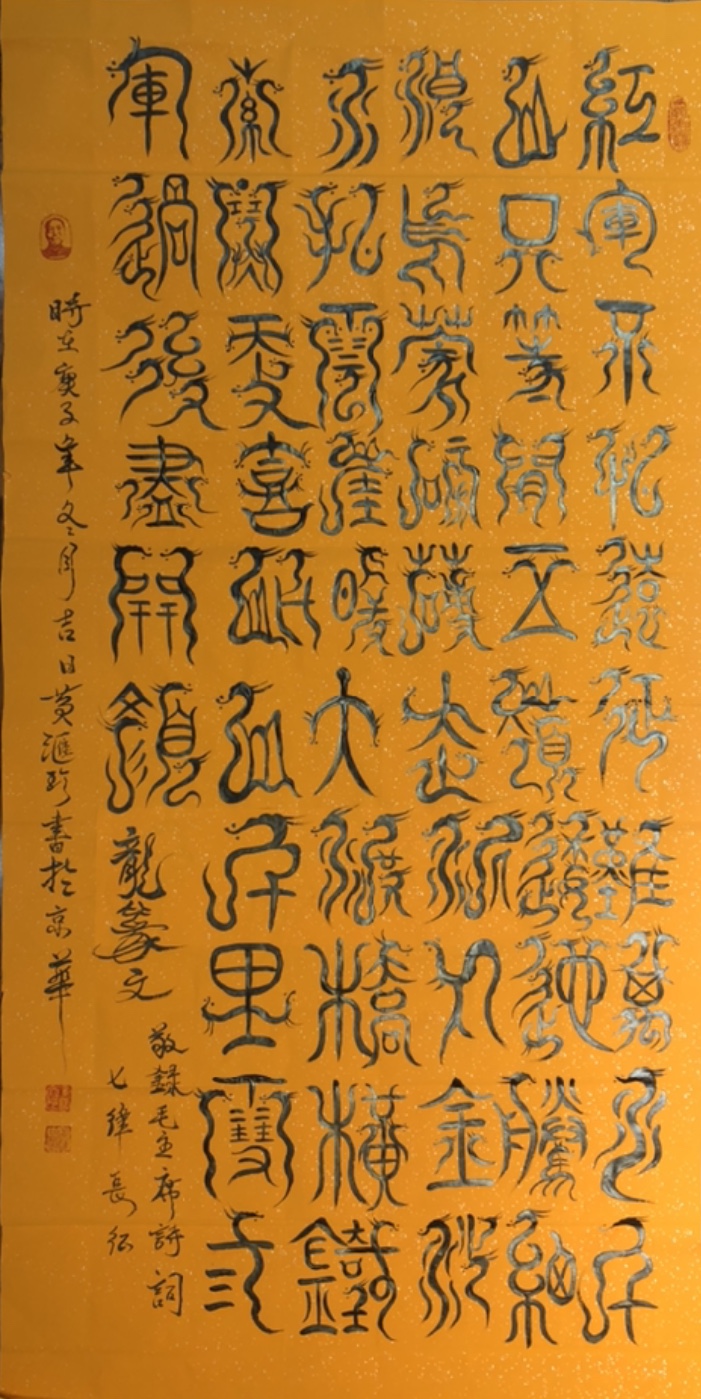 紅軍不怕遠征難萬水千
山只等閒五嶺逶迤騰細
浪烏蒙磅礴走泥丸金沙
水拍雲崖暖大渡橋橫鐵
索寒更喜岷山千里雪三
軍過後盡開顏 龍篆文
敬錄毛主席詩詞
七律長征
時在庚子年冬月吉日黃滙珍書於京華